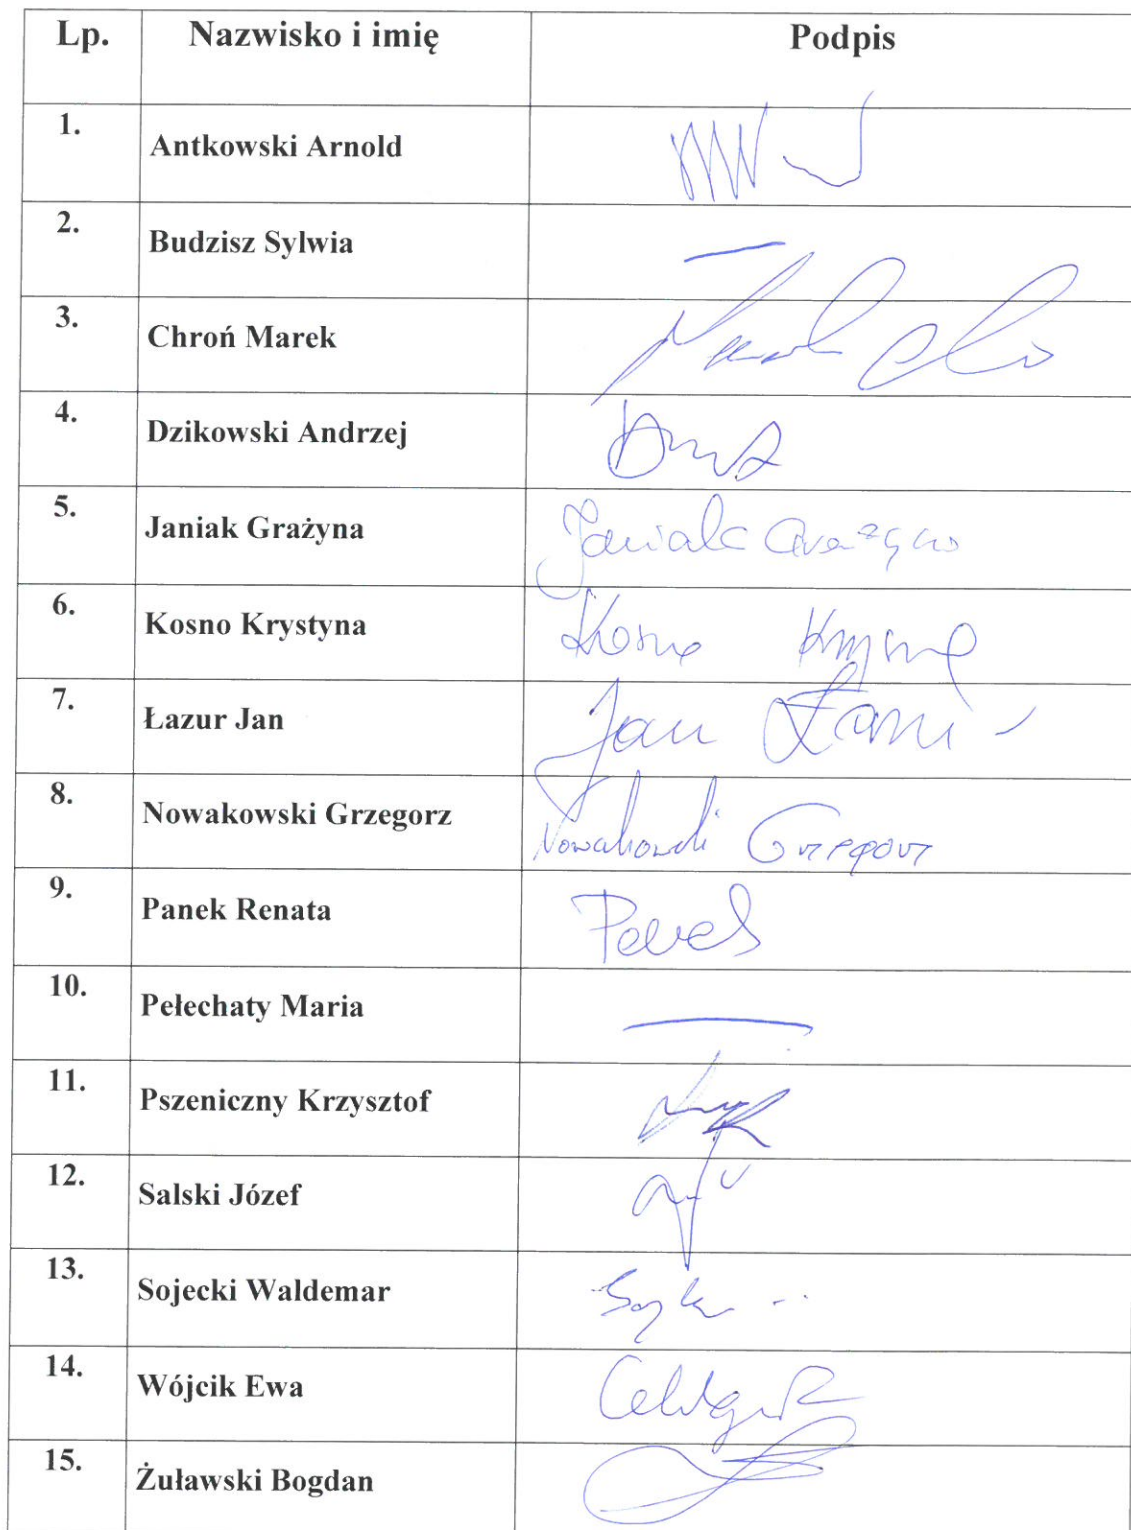 Lp. Nazwisko i imię Podpis
1. Antkowski Arnold
2. Budzisz Sylwia —
3. Chroń Marek
4. Dzikowski Andrzej
5. Janiak Grażyna Janiak Grażyna
6. Kosno Krystyna Kosno
7. Łazur Jan Jan
8. Nowakowski Grzegorz Nowakowski Grzegorz
9. Panek Renata Panek
10. Pełechaty Maria —
11. Pszeniczny Krzysztof
12. Salski Józef
13. Sojecki Waldemar
14. Wójcik Ewa
15. Żuławski Bogdan